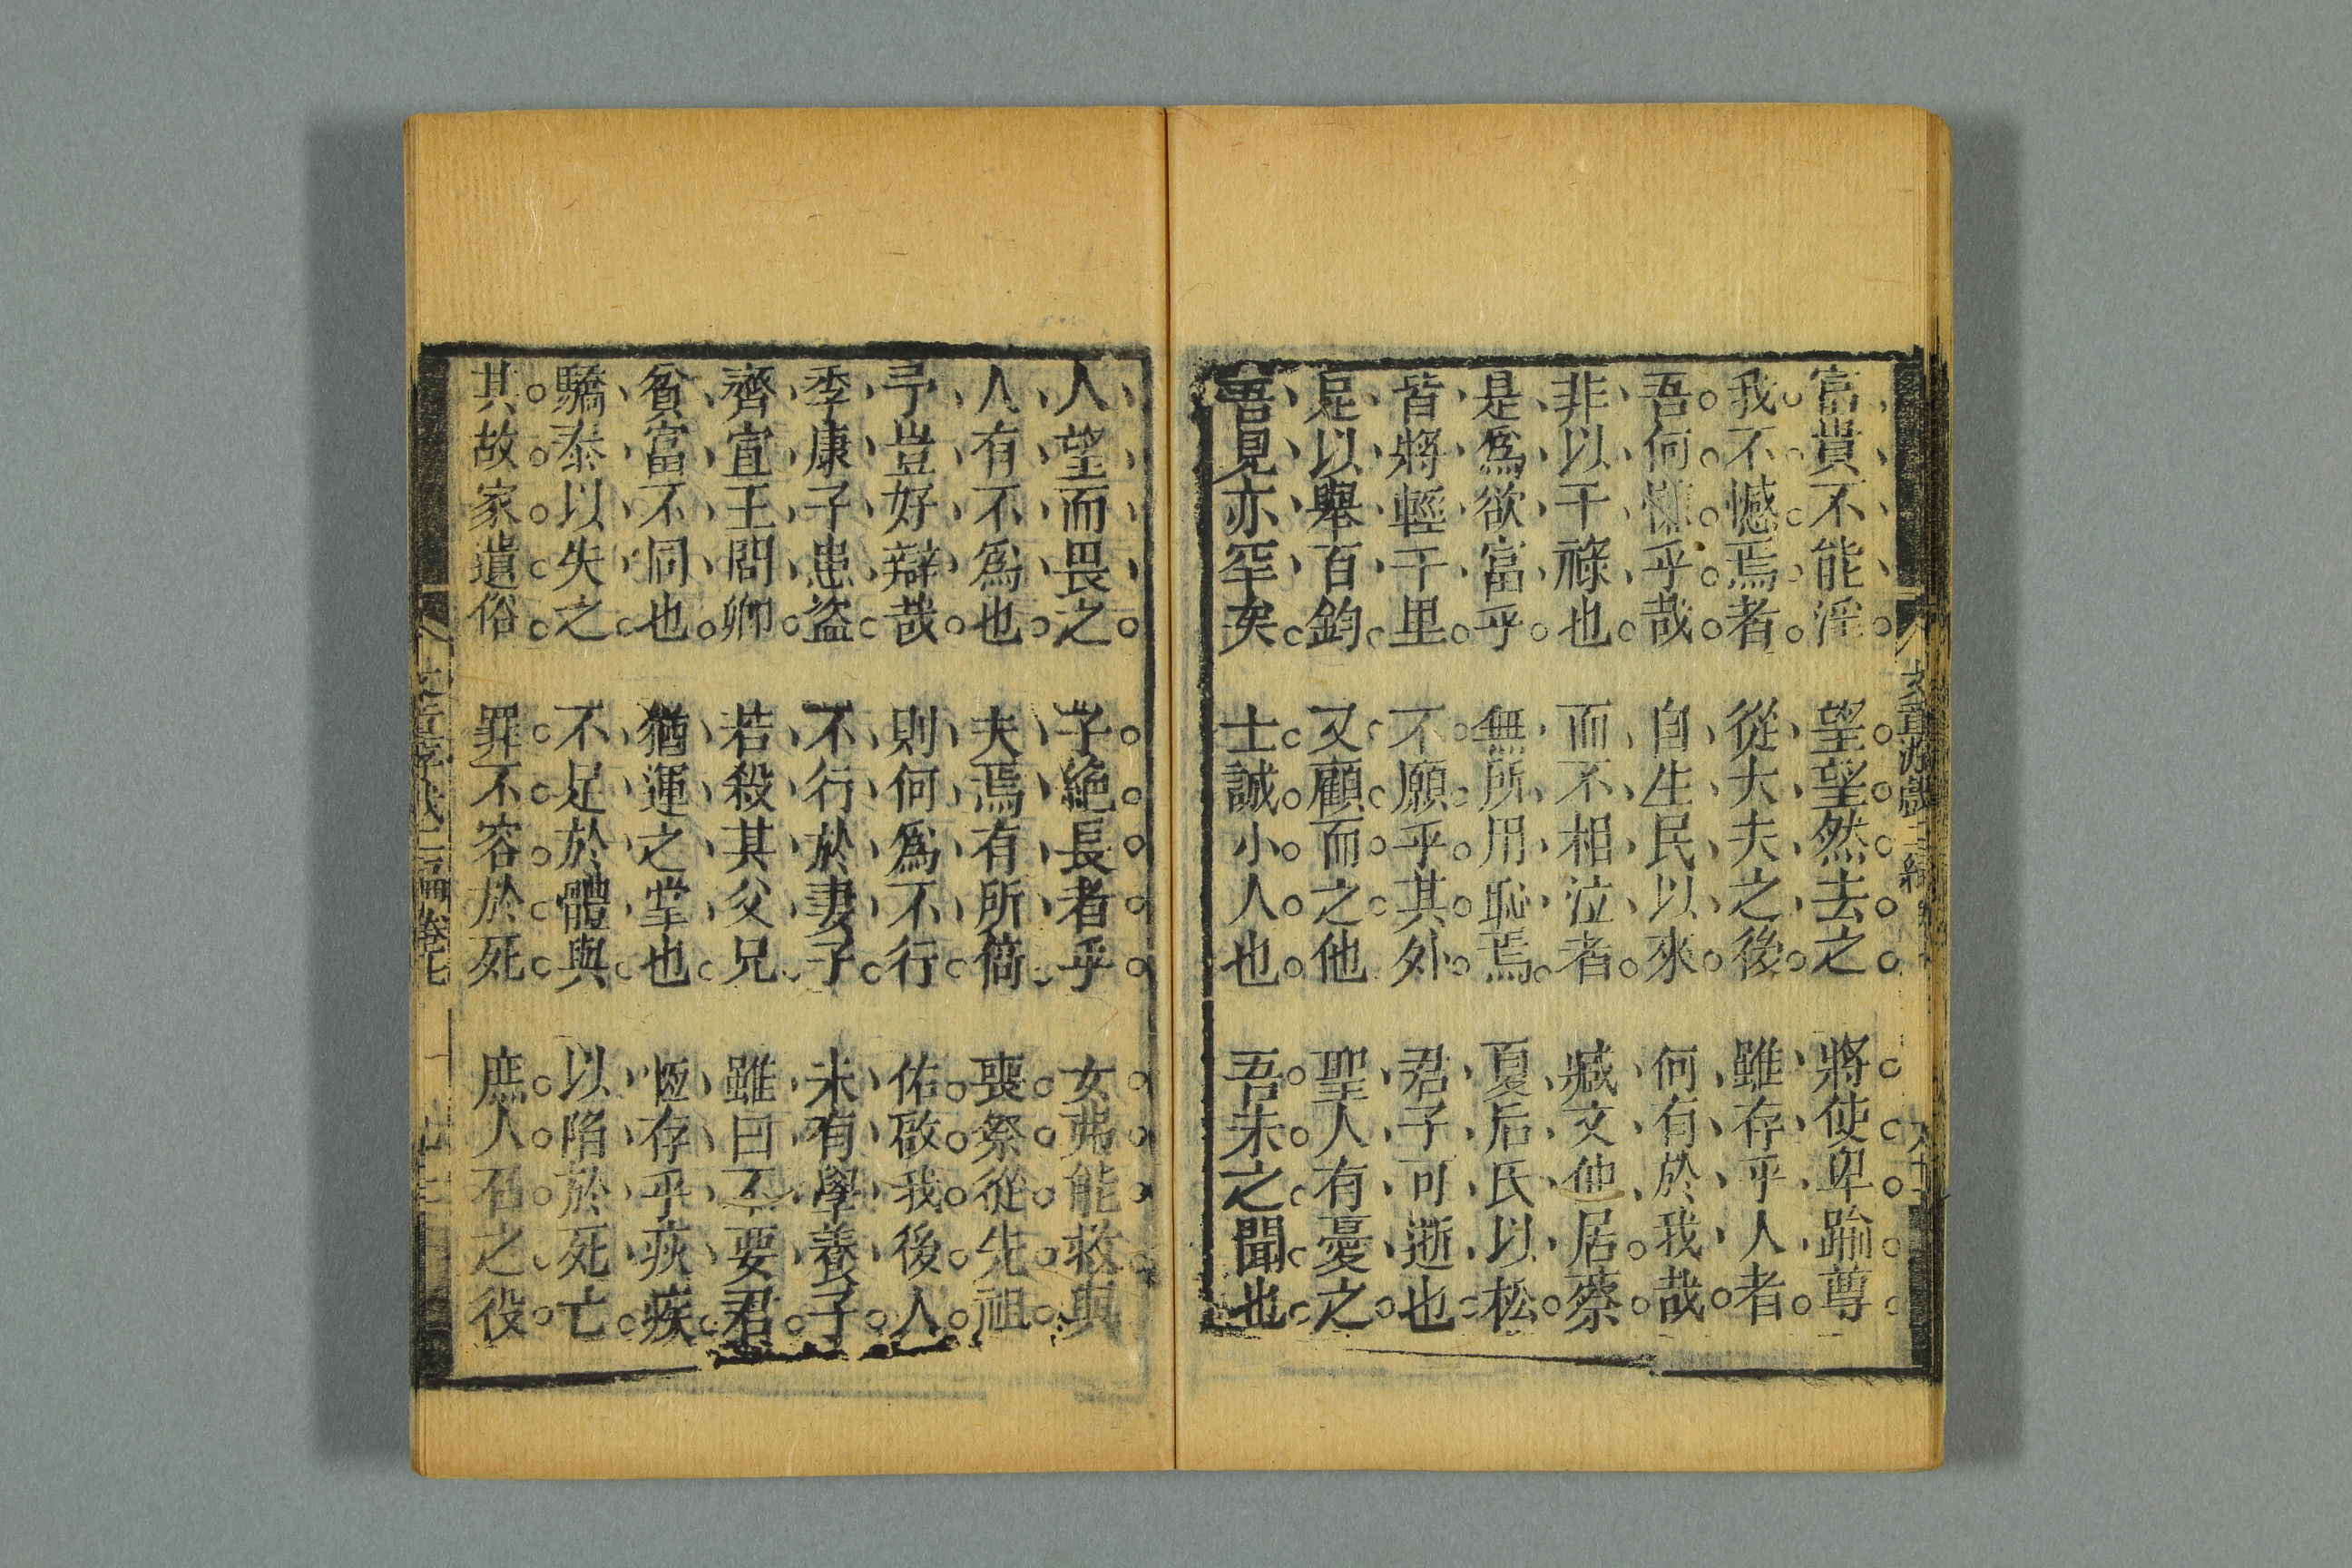 富貴不能淫 望望然去之 將使卑踰尊
我不憾焉者 從大夫之後 雖存乎人者
吾何慊乎哉 自生民以來 何有於我哉
非以干祿也 而不相泣者 臧文仲居蔡
是爲欲富乎 無所用恥焉 夏后氏以松
皆將輕千里 不願乎其外 君子可逝也
足以舉百鈞 又顧而之他 聖人有憂之
吾見亦罕矣 士誠小人也 吾未之聞也
人望而畏之 子絶長者乎 女弗能救與
人有不爲也 夫焉有所倚 喪祭從先祖
予豈好辯哉 則何爲不行 佑啟我後人
季康子患盜 不行於妻子 未有學養子
齊宣王問卿 若殺其父兄 雖曰不要君
貧富不同也 猶運之掌也 恆存乎疢疾
驕泰以失之 不足於體與 以陷於死亡
其故家遺俗 罪不容於死 庶人召之役